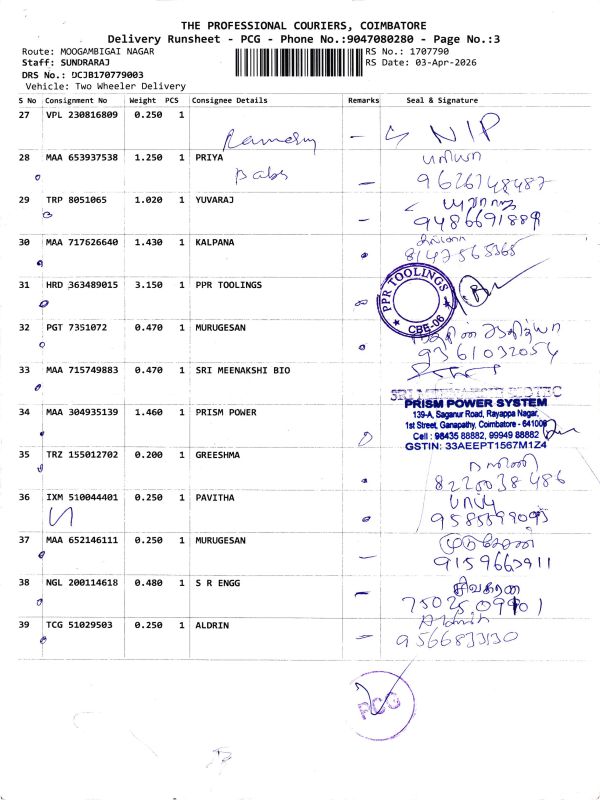 THE PROFESSIONAL COURIERS, COIMBATORE
Delivery Runsheet - PCG - Phone No.:9047080280 - Page No.:3
Route: MOOGAMBIGAI NAGAR
RS No.: 1707790
Staff: SUNDRARAJ
RS Date: 03-Apr-2026
DRS No.: DCJB170779003
Vehicle: Two Wheeler Delivery
S No Consignment No Weight PCS Consignee Details Remarks Seal & Signature
27 VPL 230816809 0.250 1
NIP
28 MAA 653937538 1.250 1 PRIYA
பிரியா
9626748487
29 TRP 8051065 1.020 1 YUVARAJ
யுவராஜ்
9486691889
30 MAA 717626640 1.430 1 KALPANA
8147565365
31 HRD 363489015 3.150 1 PPR TOOLINGS
PPR TOOLINGS
CBE-06
32 PGT 7351072 0.470 1 MURUGESAN
9361032054
33 MAA 715749883 0.470 1 SRI MEENAKSHI BIO
34 MAA 304935139 1.460 1 PRISM POWER
PRISM POWER SYSTEM
139-A, Saganur Road, Rayappa Nagar,
1st Street, Ganapathy, Coimbatore - 641006
Cell : 98435 88882, 99949 88882
GSTIN: 33AEEPT1567M1Z4
35 TRZ 155012702 0.200 1 GREESHMA
8220038486
36 IXM 510044401 0.250 1 PAVITHA
37 MAA 652146111 0.250 1 MURUGESAN
முருகேசன்
9159663911
38 NGL 200114618 0.480 1 S R ENGG
39 TCG 51029503 0.250 1 ALDRIN
Aldrin
9566833130
PCG